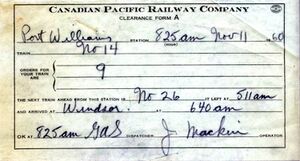 CANADIAN PACIFIC RAILWAY COMPANY
CLEARANCE FORM A
Port Williams STATION 825am Nov 11 1960
TRAIN No 14
ORDERS FOR YOUR TRAIN ARE 9
THE NEXT TRAIN AHEAD FROM THIS STATION IS No 26 IT LEFT AT 511am
AND ARRIVED AT Windsor " 640am
OK AT 825am GAS DISPATCHER J. Mackin